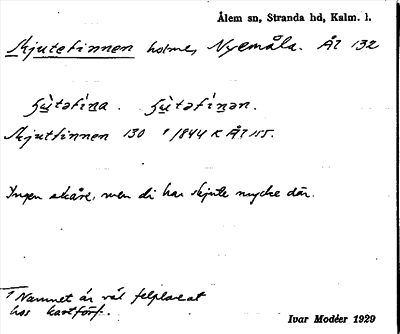 Ålem sn, Stranda hd, Kalm. l.
Skjutefinnen holme, Nyemåla. Ål 132
Skjutfinnen 130 ¹ 1844 K Ål 115.
Ingen skåre, men di har skjute mycke där.
¹ Namnet är väl felplacerat
hos kartförf.
Ivar Modéer 1929